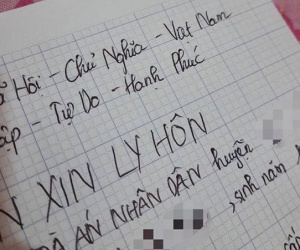 Hội - Chủ Nghĩa - Vạt Nam
- Tự Do - Hạnh Phúc
XIN LY HÔN
ÁN NHÂN DÂN huyện
, sinh năm